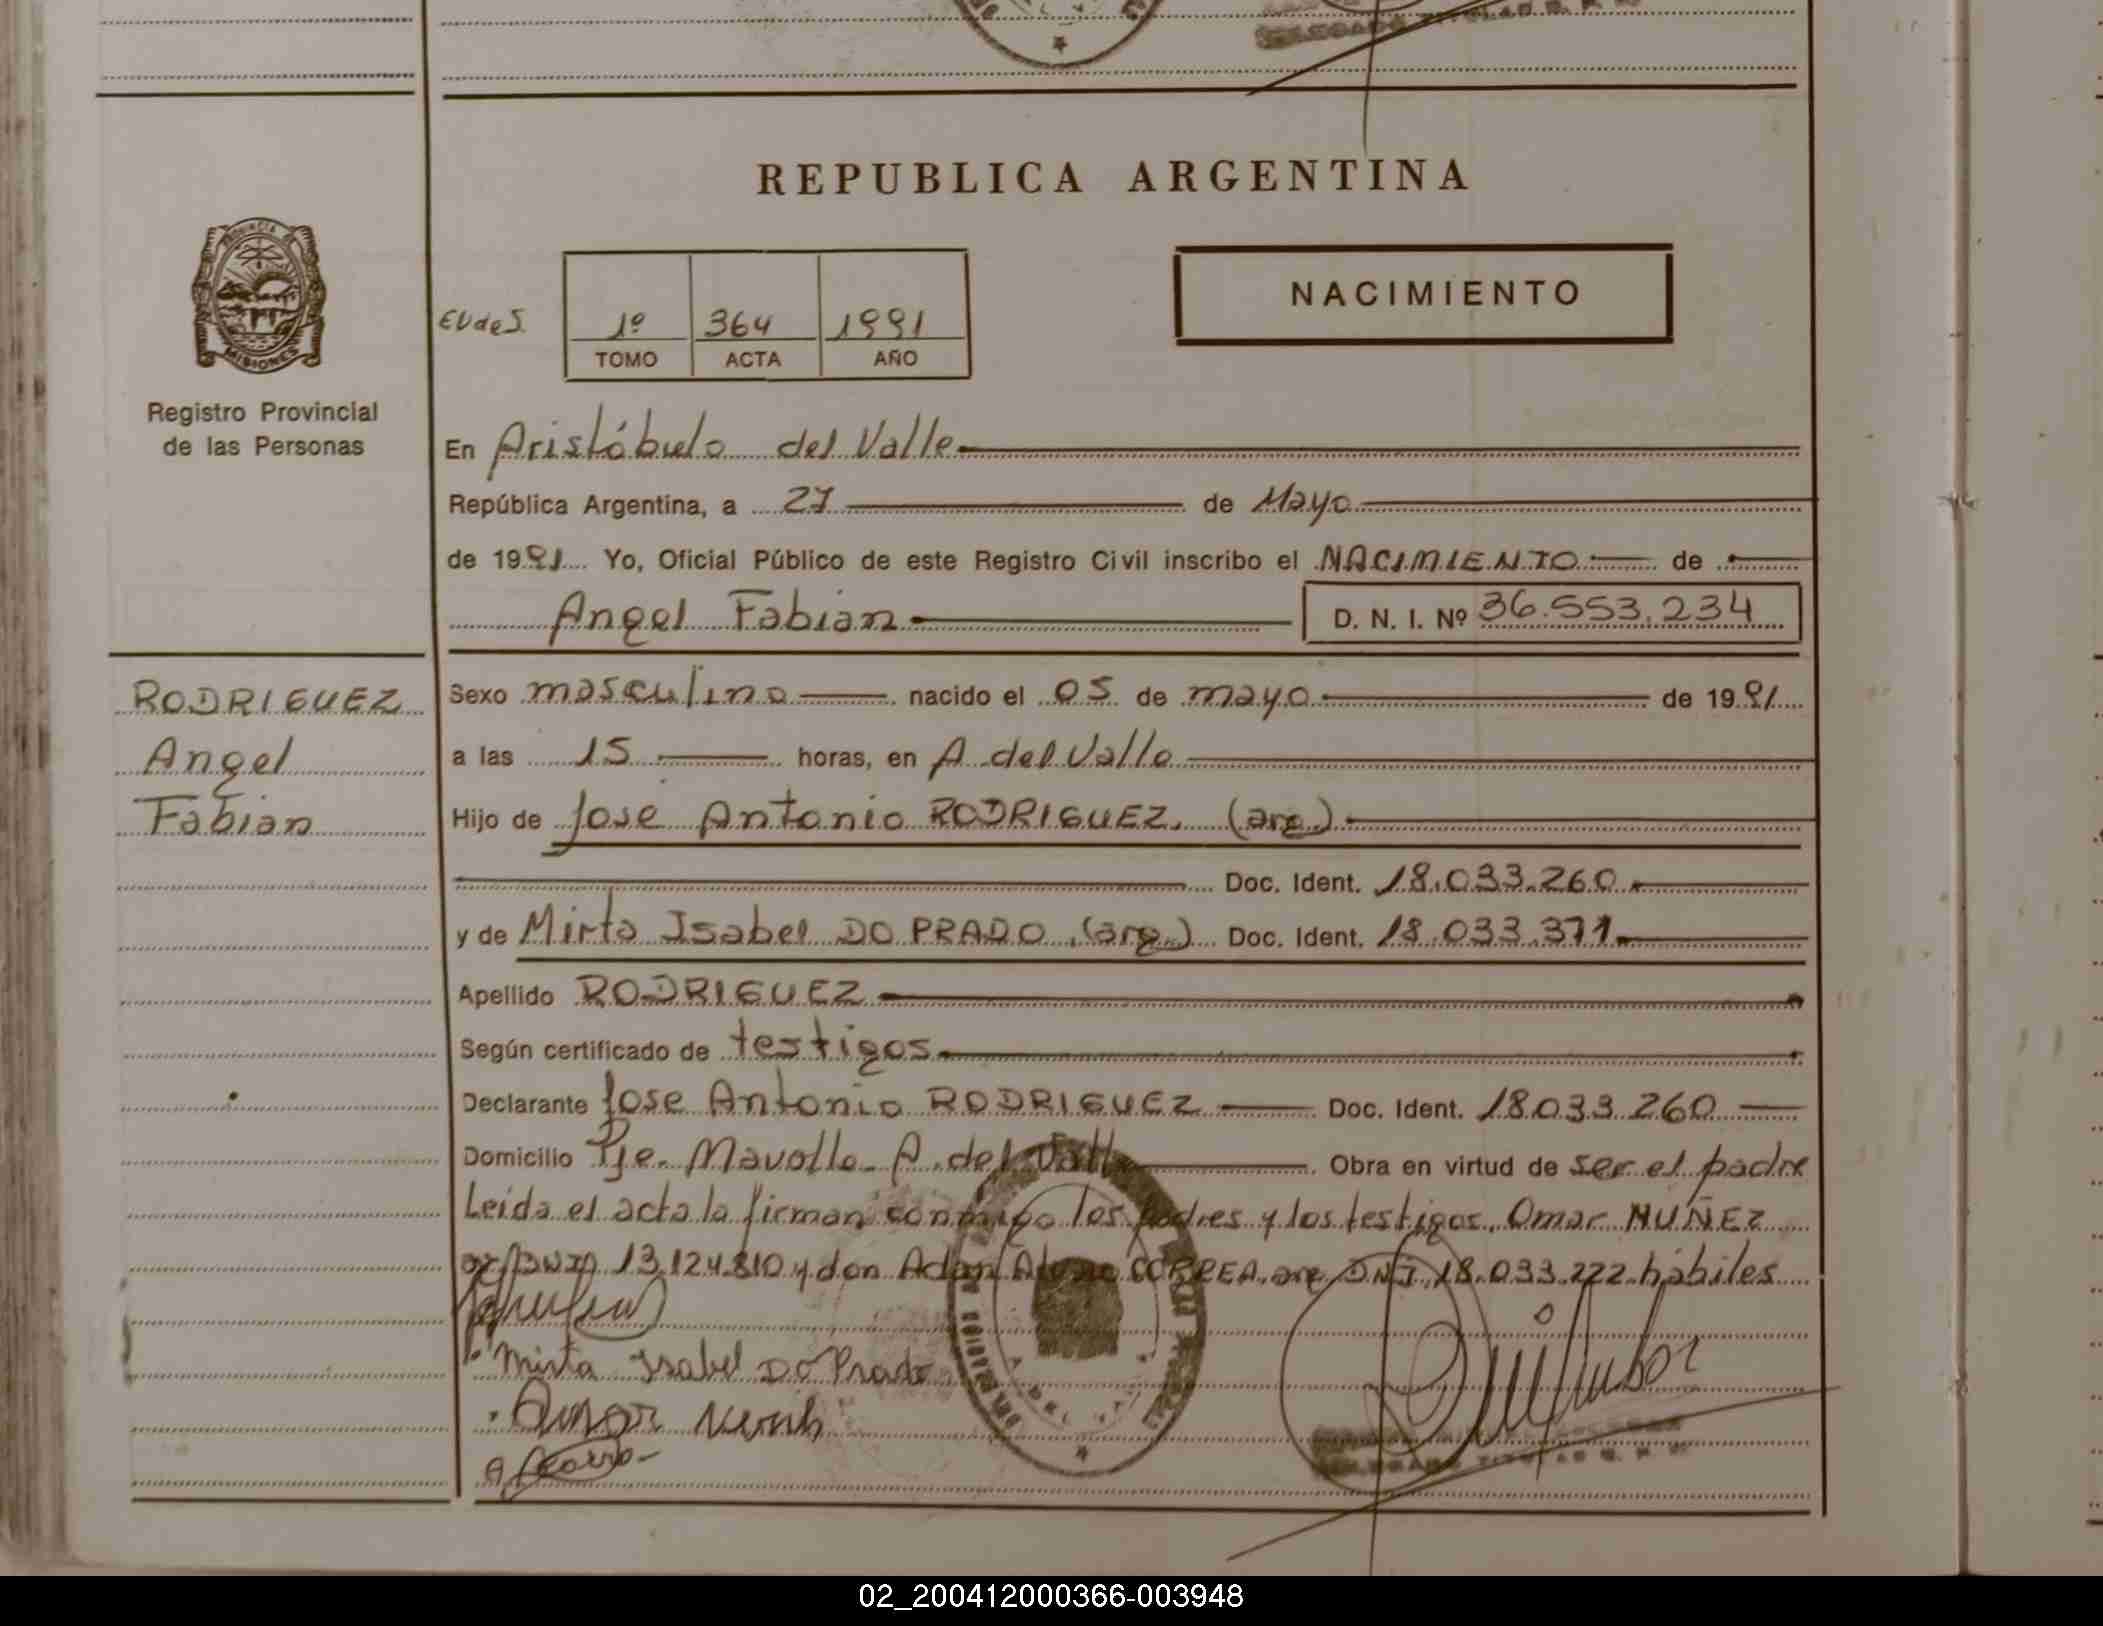 REPUBLICA ARGENTINA
PROVINCIA DE
MISIONES
Registro Provincial
de las Personas
NACIMIENTO
1º 364 1991
TOMO ACTA AÑO
En Aristóbulo del Valle
República Argentina, a 27 de Mayo
de 1991 Yo, Oficial Público de este Registro Civil inscribo el NACIMIENTO de
Angel Fabian D. N. I. Nº 36.553.234
RODRIGUEZ
Angel
Fabian
Sexo masculino nacido el 05 de mayo de 1991
a las 15 horas, en A. del Valle
Hijo de Jose Antonio RODRIGUEZ. (arg.)
Doc. Ident. 18.033.260
y de Mirta Isabel DO PRADO, (arg.) Doc. Ident. 18.033.371
Apellido RODRIGUEZ
Según certificado de testigos
Declarante Jose Antonio RODRIGUEZ Doc. Ident. 18.033.260
Domicilio Pje. A. del Valle Obra en virtud de ser el padre
Leida el acta la firman conmigo los padres y los testigos, Omar NUÑEZ
13.124.810 y don Adan CORREA, arg DNI 18.033.222 hábiles
Mirta Isabel Do Prado
Omar
02_200412000366-003948